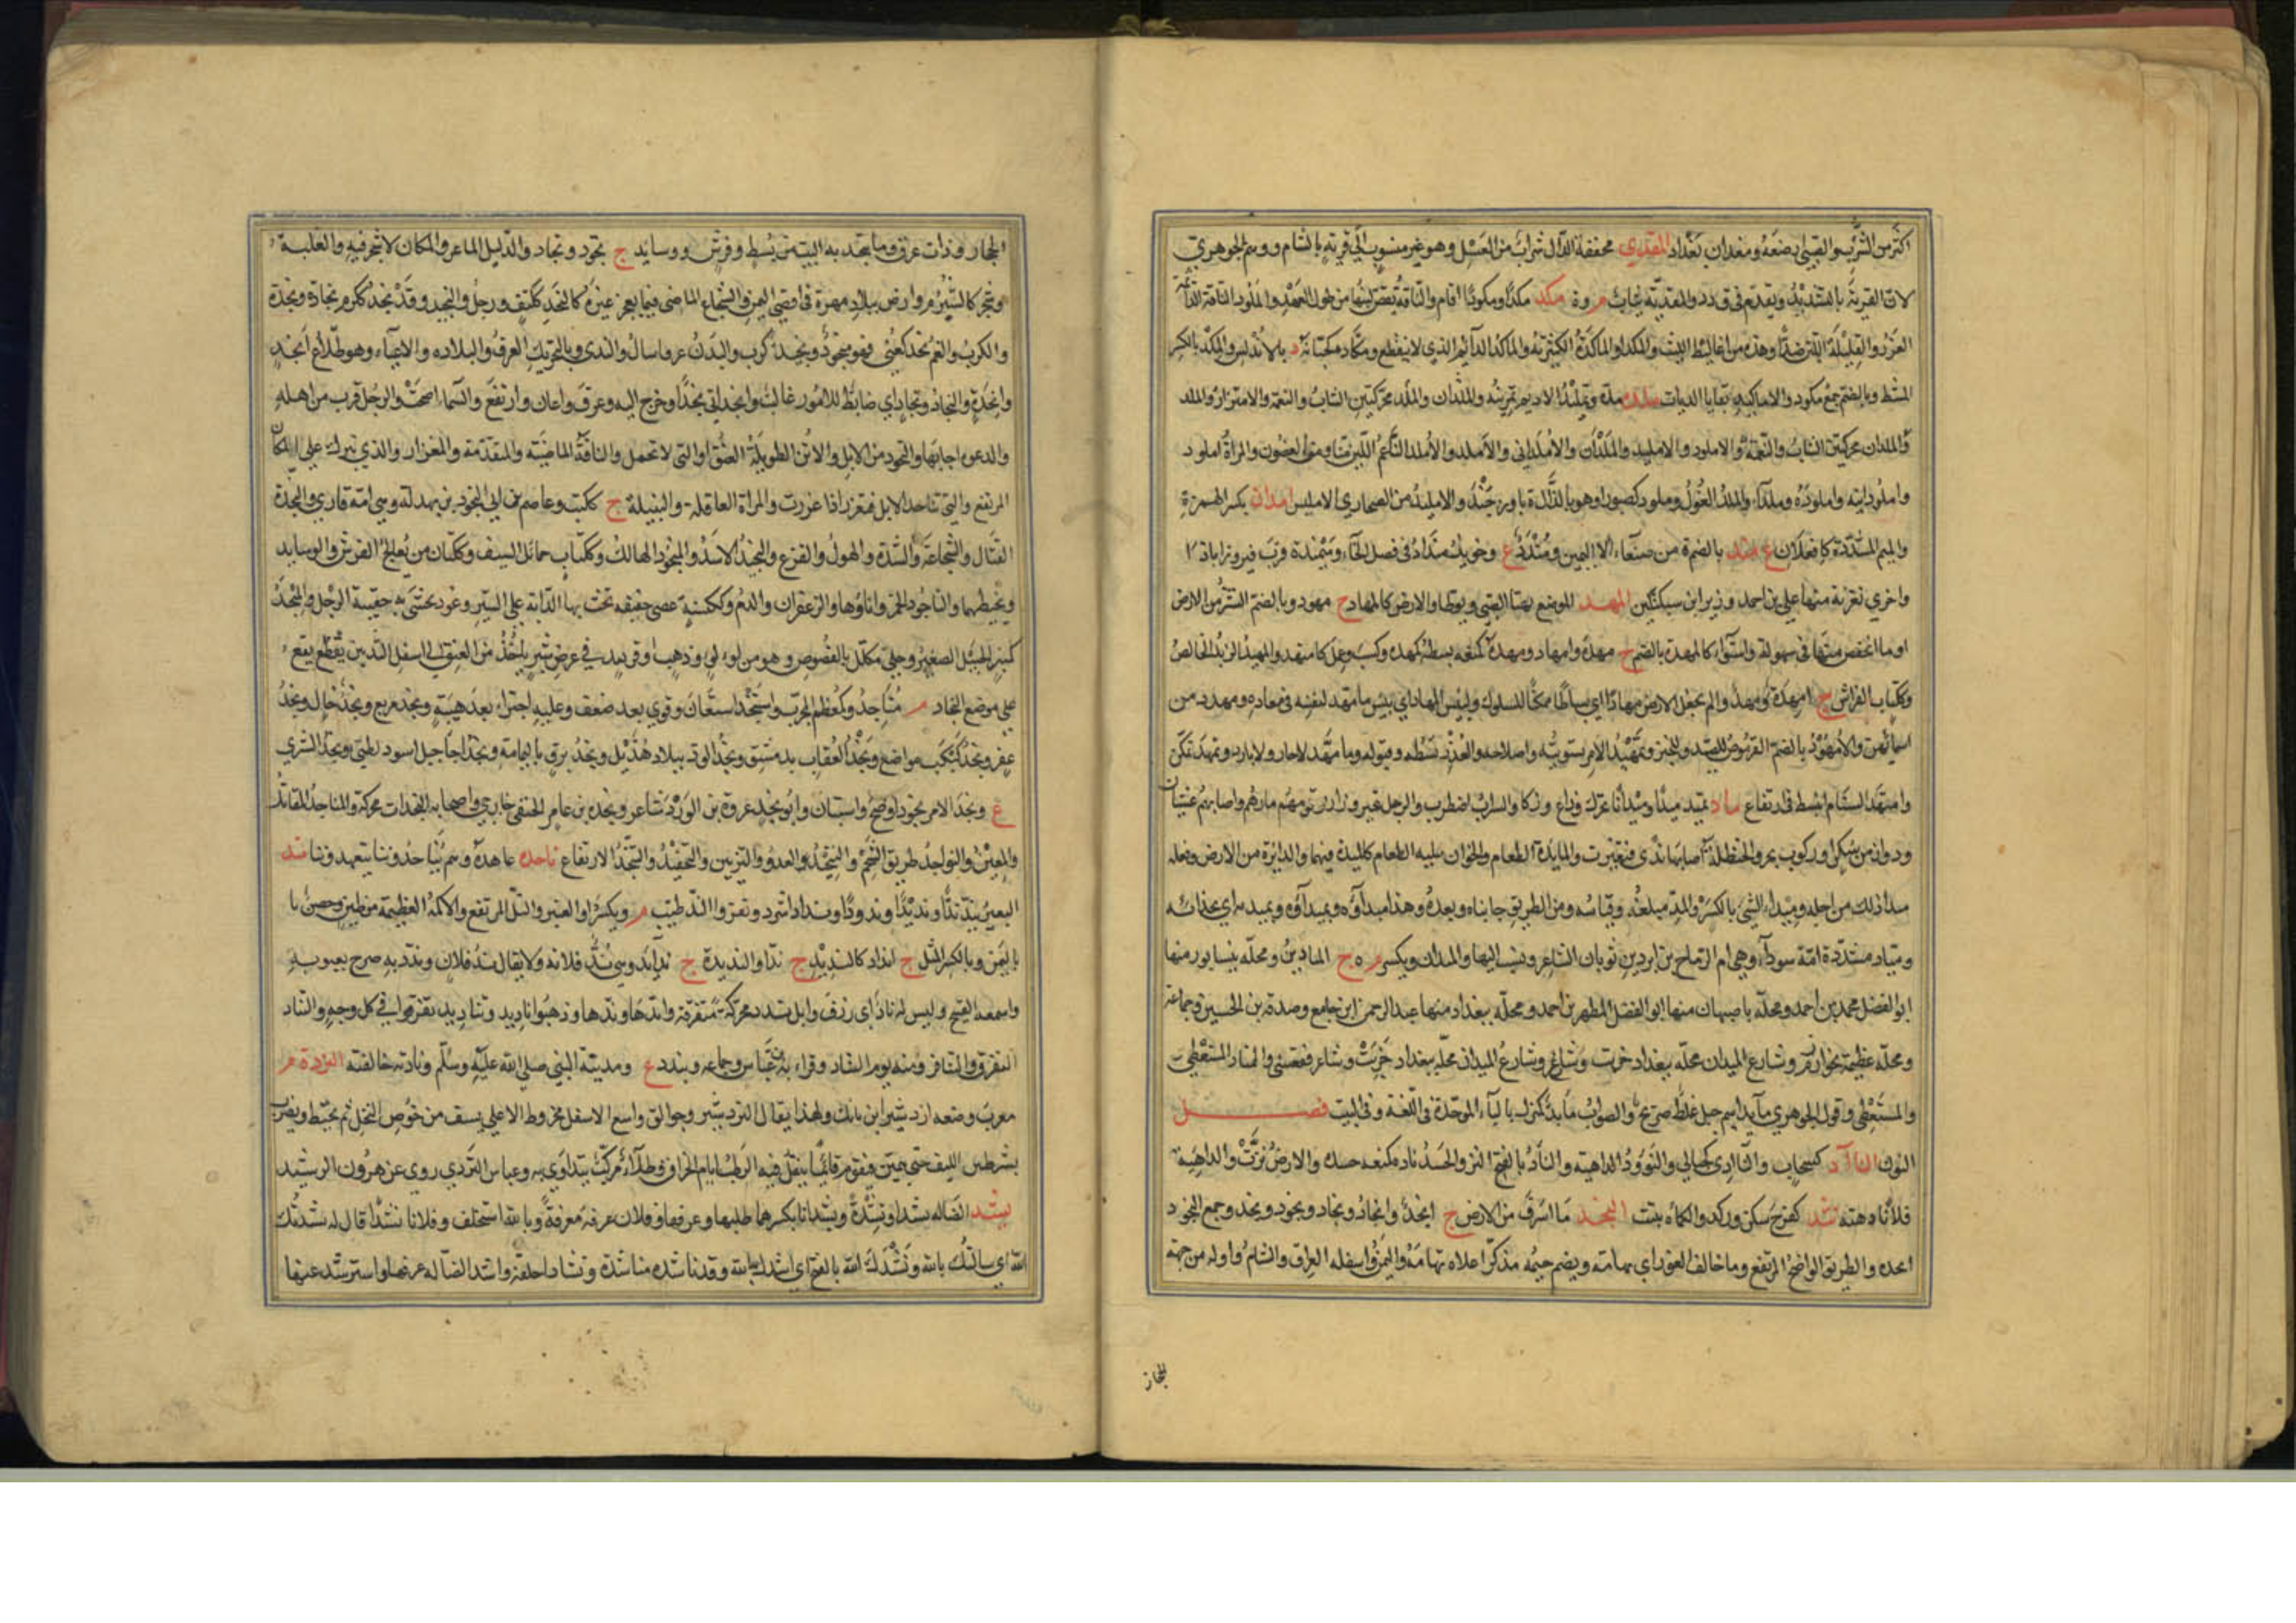 اكثر من الشرب والقيني بضعه ومغدان بغداد المقدي مخففة الدال شراب من العسل وهو غير منسوب الى قرية بالشام ووهم الجوهري
لان القرية بالتشديد ويقدم في ق د د والمقدية بم وة مكد مكدا ومكودا اقام والناقة نقص لبنها من طول العهد والمكود الناقة الدائمة
الغزر والقليلة اللبن ضد وهذه من اغاليط الليث والمكداء والماكدة الكثيرته والماكد الدائم الذي لا ينقطع ومكادة كجبانة د بالاندلس والمكد بالكسر
المشط وبالضم جمع مكود والاماكيد بقايا الديات ملده مده وتمليد الاديم تمرينه والملدان والملد محركتين الشاب والنعمة والاهتزاز والملد
والملدان محركتين الشاب والنعمة والاملود والامليد والملدان والاملداني والاملد والاملد الناعم اللين منا ومن الغصون والمراة املود
واملودانية واملودة وملداء والملد الغول وملود كصبور او هو بالذال ة باوزجند والامليد من الصحاري الامليس امدان بكسر الهمزة
والميم المشددة كافعلان ع مند بالضم ة من صنعاء الا اليمين ومندد ع وخويل منداد في فصل الخاء وميمندة قرب فيروزاباد
واخرى بغزنة منها علي بن احمد وزير ابن سبكتكين المهد الموضع يهيا للصبي ويوطا والارض كالمهاد ج مهود وبالضم النشز من الارض
او ما انخفض منها في سهولة واستواء كالمهدة بالضم ج مهدة وامهاد ومهده كمنعه بسطه كمهده وكسب وعمل كامتهد والمهيد الزبد الخالص
وككتاب الفراش ج امهدة ومهد والم نجعل الارض مهادا اي بساطا ممكنا للسلوك ولبئس المهاد اي بئس ما مهد لنفسه في معاده ومهدد من
اسمائهن والامهود بالضم القرموص للصيد وللخبز وتمهيد الامر تسويته واصلاحه والعذر بسطه وقبوله وما متهد لاحار ولا بارد وتمهد تمكن
وامتهد السنام انبسط في ارتفاع ماد يميد ميدا وميدانا تحرك وزاغ وزكا والسراب اضطرب والرجل تبختر وزار وقومه مارهم واصابهم غثيان
ودوار من سكر او ركوب بحر والحنظلة اصابها ندى فتغيرت والمايدة الطعام والخوان عليه الطعام كالميدة فيهما والدائرة من الارض وفعله
ميدا ذلك من اجله وميداء الشيء بالكسر والمد مبلغه وقياسه ومن الطريق جانباه وبعده وهذا ميداؤه وبميدائه وبميداه اي بحذائه
ومياد مشددة امة سوداء وهي ام الرماح بن ابرد بن ثوبان الشاعر ونسب اليها والميدان ويكسر م ه ج الميادين ومحلة بنيسابور منها
ابو الفضل محمد بن احمد ومحلة باصبهان منها ابو الفضل المطهر بن احمد ومحلة ببغداد منها عبد الرحمن ابن جامع وصدقة بن الحسين وجماعة
ومحلة عظيمة بخوارزم وشارع الميدان محلة ببغداد خربت وشارع الميدان محلة ببغداد خربت وشاعر فقعسي والممتاد المستعطي
والمستعطى وقول الجوهري مايد اسم جبل غلط صريح والصواب مابد كمنزل بالباء الموحدة في اللغة وفي البيت فصل
النون الناآد كسحاب والناآدى كحبالى والنؤود الداهية والناد بالفتح النز والحسد ناده كمنعه حسده والارض نزت والداهية
فلانا دهته نثد كفرح سكن وركد والكماة نبتت النجد ما اشرف من الارض ج انجد وانجاد ونجاد ونجود ونجد وجمع النجود
انجدة والطريق الواضح المرتفع وما خالف الغور اي تهامة ويضم جيمه مذكر اعلاه تهامة واليمن واسفله العراق والشام واوله من جهة
الحجاز
الحجاز وذات عرق وما ينجد به البيت من بسط وفرش ووسايد ج نجود ونجاد والدليل الماهر والمكان لا شجر فيه والغلبة
وشجر كالشبرم وارض ببلاد مهرة في اقصى اليمن والشجاع الماضي فيما يعجز غيره كالنجد ككتف ورجل والنجيد وقد نجد ككرم نجادة ونجدة
والكرب والغم نجد كعني فهو منجود ونجيد كرب والبدن عرقا سال والثدي وبالتحريك العرق والبلادة والاعياء وهو طلاع انجد
وانجدة والنجاد ونجاد اي ضابط للامور غالب وانجد اتى نجدا وخرج اليه وعرق واعان وارتفع والسماء اصحت والرجل قرب من اهله
والدعوة اجابها والنجود من الابل والاتن الطويلة العنق او التي لا تحمل والناقة الماضية والمقدمة والمغزار والذي تبرك على المكان
المرتفع والتي تناجد الابل فتغزر اذا غزرت والمراة العاقلة والنبيلة ج ككتب وعاصم بن ابي النجود بن بهدلة وهي امه قاري والنجدة
القتال والشجاعة والشدة والهول والفزع والنجيد الاسد والمنجود الهالك وككتاب حمائل السيف وككتان من يعالج الفرش والوسايد
ويخيطهما والناجود الخمر واناؤها والزعفران والدم وككنسة عصى خفيفة تحث بها الدابة على السير وعود يحشى به حقيبة الرجل والمنجد
كمنبر الجبيل الصغير وحلي مكلل بالفصوص وهو من لؤلؤ وذهب او قرنفل في عرض شبر ياخذ من العنق الى اسفل الثديين يقع
على موضع النجاد م مناجد وكمعظم المجرب واستنجد استعان وقوي بعد ضعف وعليه اجترا بعد هيبة ونجد مريع ونجد خال ونجد
عفر ونجد كبكب مواضع ونجد العقاب بدمشق ونجد الود ببلاد هذيل ونجد برق باليمامة ونجد اجا جبل اسود لطيئ ونجد الشرى
ع ونجد الامر نجودا وضح واستبان وابو نجد عروة بن الورد شاعر ونجدة بن عامر الحنفي خارجي واصحابه النجدات محركة والمناجد المقاتل
والمعين والنواجد طرايق الشحم والتنجيد العدو والتزيين والتحنيك والتنجد الارتفاع ناحده عاهده وهم يتناحدون يتعهدون ند
البعير يند ندا ونديدا وندودا وندادا شرد ونفر والند طيب م ويكسر او العنبر والتل المرتفع والاكمة العظيمة من طين وحصن با
باليمن وبالكسر المثل ج انداد كالنديد ج نداء والنديدة ج ندائد وهي ند فلانة ولا يقال ند فلان وندد به صرح بعيوبه
واسمعه القبيح وليس له ناد اي رزق وابل ندد محركة متفرقة واندها وندها وذهبوا اناديد وتناديد تفرقوا في كل وجه والتناد
التفرق والتنافر ومنه يوم التناد وقراء به ابن عباس وجماعة ويندد ع ومدينة النبي صلى الله عليه وسلم ونادته خالفته النردة م
معرب وضعه ازدشير ابن بابك ولهذا يقال النردشير وجوالق واسع الاسفل مخروط الاعلى يسف من خوص النخل ثم يخيط ويضرب
بشرط من الليف حتى يمتن فيقوم قائما ينقل فيه الرطب ايام الخراف وطلاء مركب يتداوى به وعباس النردي روى عن هرون الرشيد
نشد الضالة نشدا ونشدة ونشدانا بكسرهما طلبها وعرفها وفلان عرفه معرفة وبالله استحلف وفلانا نشدا قال له نشدتك
الله اي سالتك بالله ونشدك الله بالفتح اي انشدك بالله وقد ناشده مناشدة ونشادا حلفه وانشد الضالة عرفها واسترشد عنها